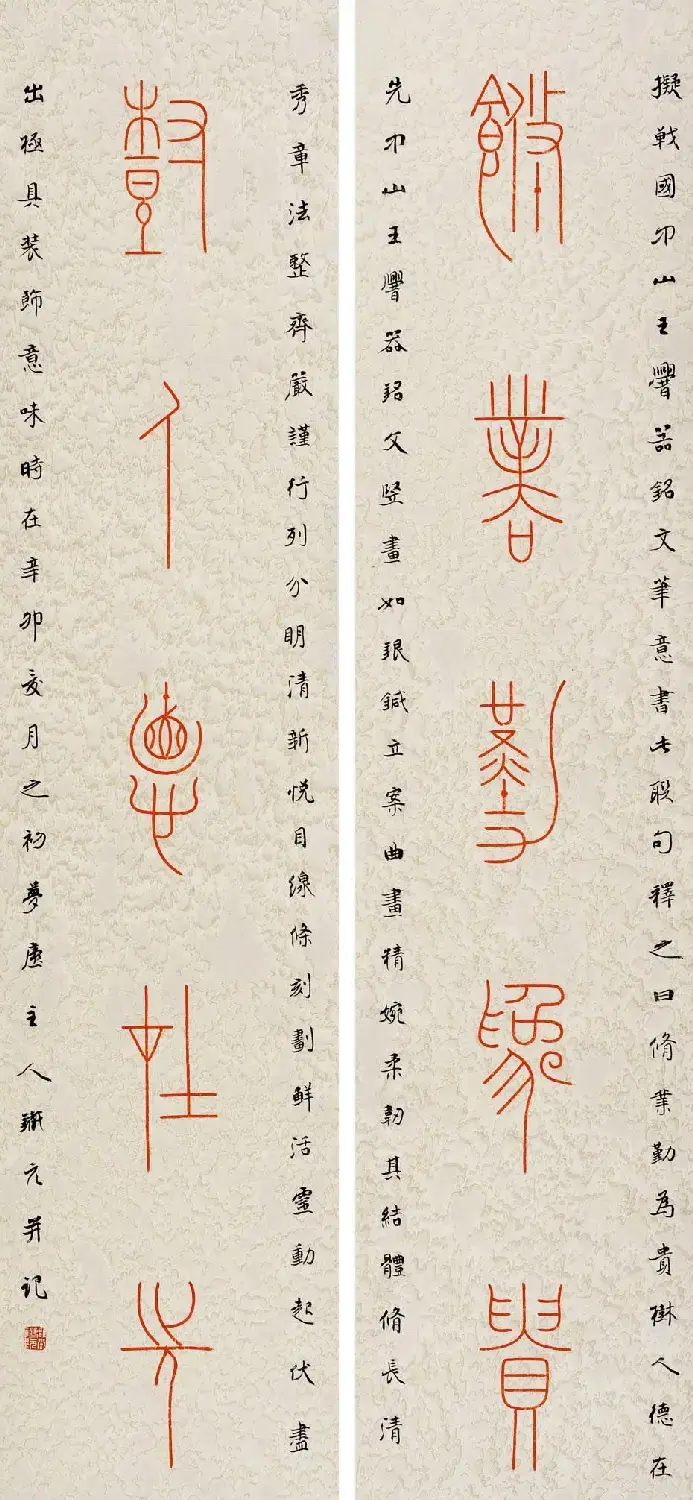 擬戰國中山王譻器銘文筆意書此聯句釋之曰脩業勤為貴樹人德在
脩業勤為貴
先中山王譻器銘文竪畫如銀鍼立案曲畫精婉柔韌其結體脩長清
秀章法整齊嚴謹行列分明清新悅目線條刻劃鮮活靈動起伏盡
樹人德在先
出極具裝飾意味時在辛卯月之初夢廬主人元并記